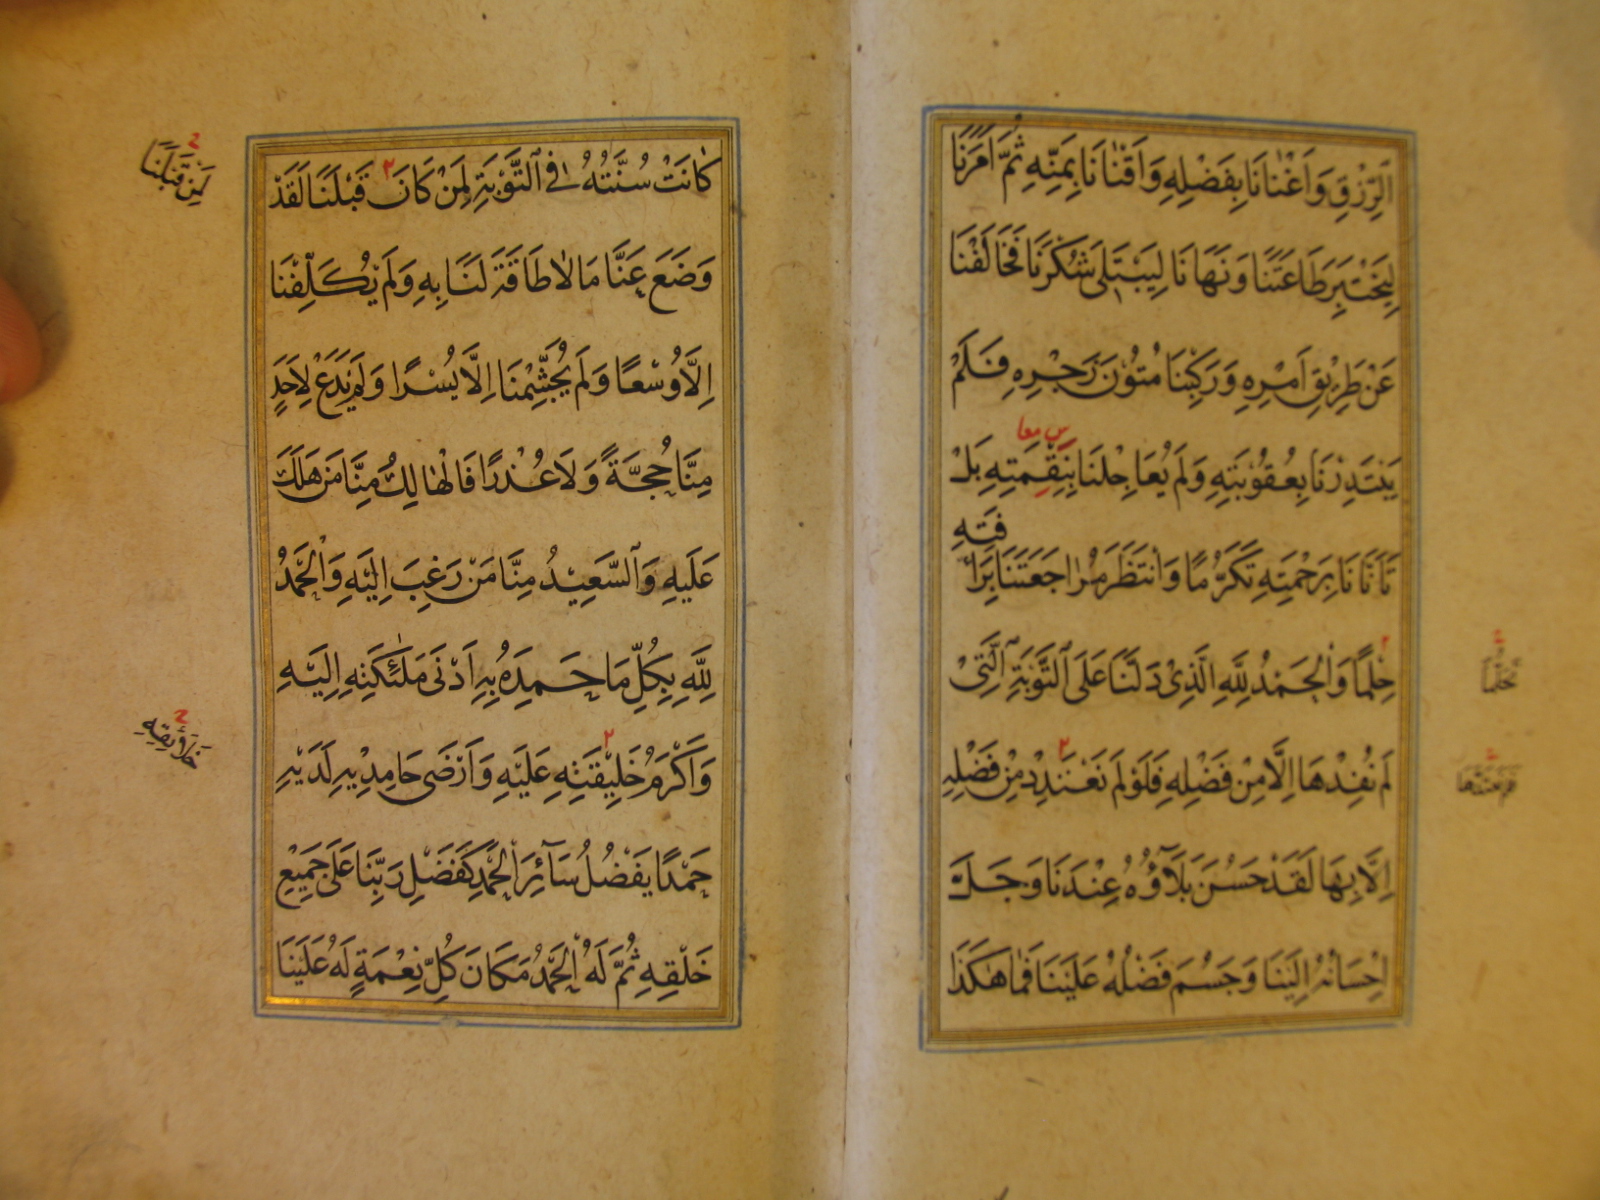 الرِّزْقِ وَاَغْنَانَا بِفَضْلِهِ وَاَقْنَانَا بِمَنِّهِ ثُمَّ اَمَرَنَا
لِيَخْتَبِرَ طَاعَتَنَا وَنَهَانَا لِيَبْتَلِىَ شُكْرَنَا فَخَالَفْنَا
عَنْ طَرِيْقِ اَمْرِهِ وَرَكِبْنَا مُتُوْنَ زَجْرِهِ فَلَمْ
س معا
يَبْتَدِرْنَا بِعُقُوْبَتِهِ وَلَمْ يُعَاجِلْنَا بِنَقِمَتِهِ بَلْ
تَاَنَّانَا بِرَحْمَتِهِ تَكَرُّمًا وَانْتَظَرَ مُرَاجَعَتَنَا بِرَاْفَتِهِ
حِلْمًا وَالْحَمْدُ لِلَّهِ الَّذِىْ دَلَّنَا عَلَى التَّوْبَةِ الَّتِىْ
لَمْ نُفِدْهَا اِلَّا مِنْ فَضْلِهِ فَلَوْ لَمْ نَعْتَدِدْ مِنْ فَضْلِهِ
اِلَّا بِهَا لَقَدْ حَسُنَ بَلَاؤُهُ عِنْدَنَا وَجَلَّ
اِحْسَانُهُ اِلَيْنَا وَجَسُمَ فَضْلُهُ عَلَيْنَا فَمَا هٰكَذَا
كَانَتْ سُنَّتُهُ فِى التَّوْبَةِ لِمَنْ كَانَ قَبْلَنَا لَقَدْ
لِمَنْ قَبْلَنَا
وَضَعَ عَنَّا مَا لَا طَاقَةَ لَنَا بِهِ وَلَمْ يُكَلِّفْنَا
اِلَّا وُسْعًا وَلَمْ يُجَشِّمْنَا اِلَّا يُسْرًا وَلَمْ يَدَعْ لِاَحَدٍ
مِنَّا حُجَّةً وَلَا عُذْرًا فَالْهَالِكُ مِنَّا مَنْ هَلَكَ
عَلَيْهِ وَالسَّعِيْدُ مِنَّا مَنْ رَغِبَ اِلَيْهِ وَالْحَمْدُ
لِلَّهِ بِكُلِّ مَا حَمِدَهُ بِهِ اَدْنَى مَلٰئِكَتِهِ اِلَيْهِ
وَاَكْرَمُ خَلِيْقَتِهِ عَلَيْهِ وَاَرْضَى حَامِدِيْهِ لَدَيْهِ
خَلَائِقِهِ
حَمْدًا يَفْضُلُ سَائِرَ الْحَمْدِ كَفَضْلِ رَبِّنَا عَلَى جَمِيْعِ
خَلْقِهِ ثُمَّ لَهُ الْحَمْدُ مَكَانَ كُلِّ نِعْمَةٍ لَهُ عَلَيْنَا